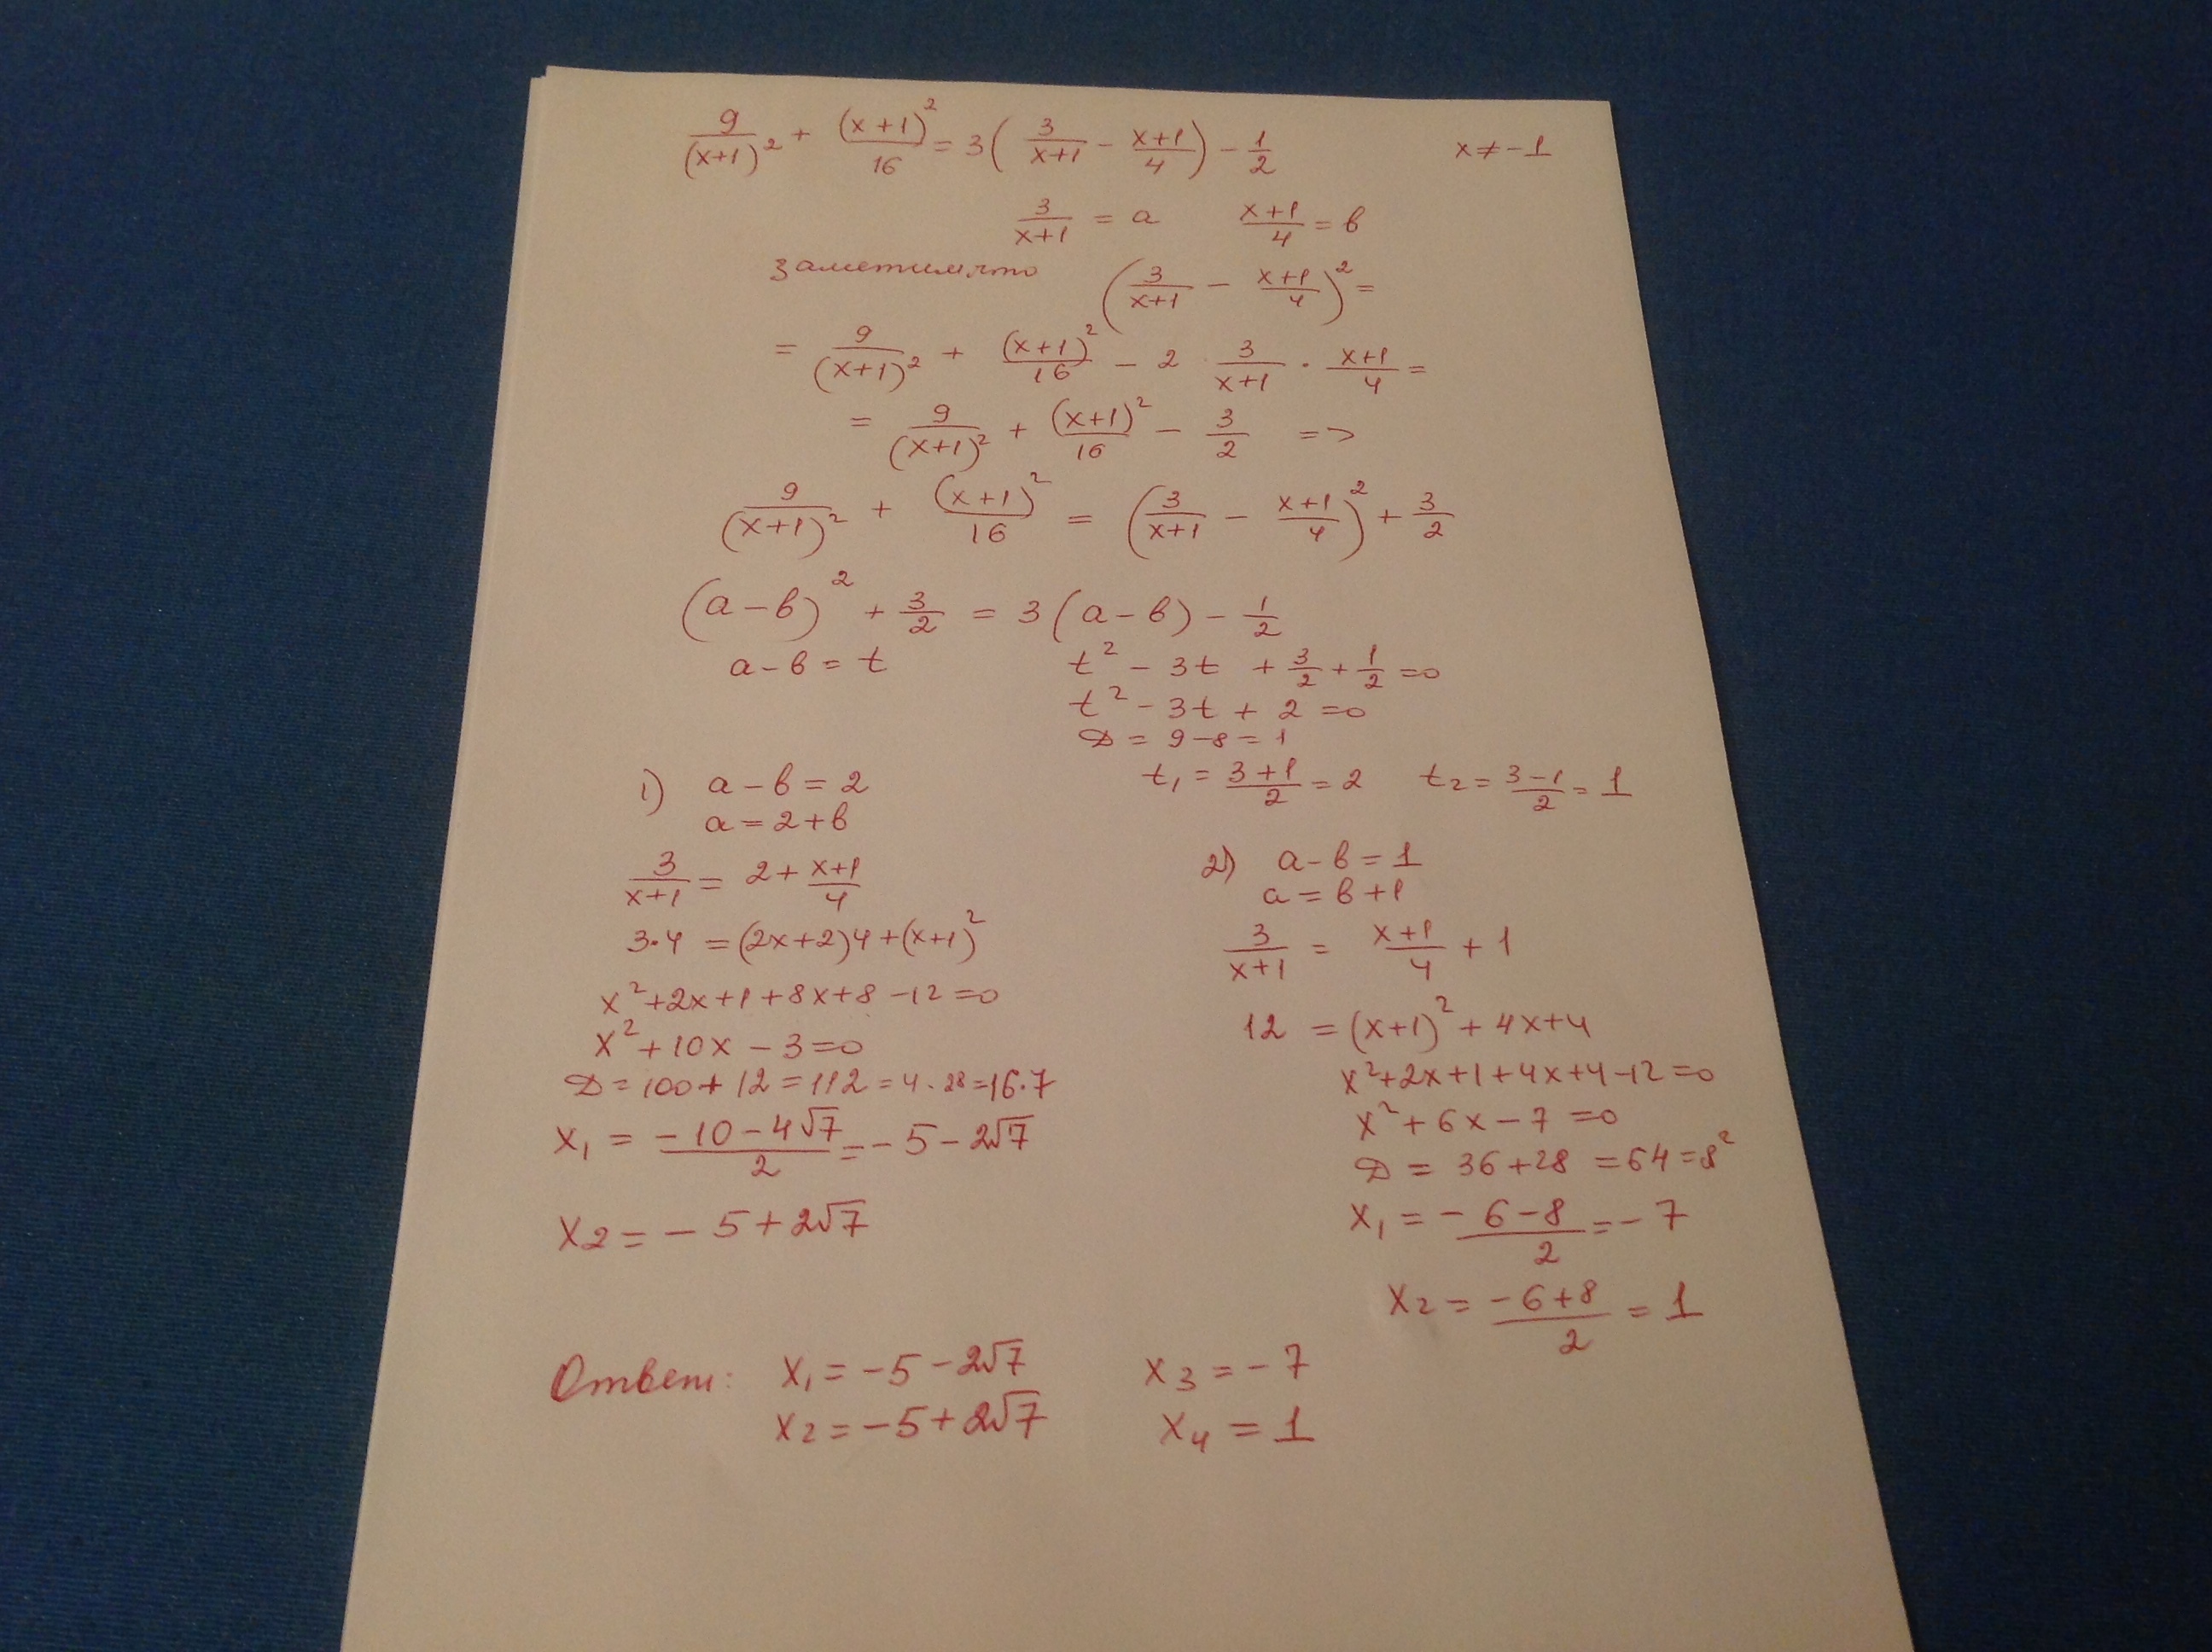 9/(x+1)² + (x+1)²/16 = 3(3/(x+1) - (x+1)/4) - 1/2    x ≠ -1
3/(x+1) = a    (x+1)/4 = в
заметим, что (3/(x+1) - (x+1)/4)² =
= 9/(x+1)² + (x+1)²/16 - 2 · 3/(x+1) · (x+1)/4 =
= 9/(x+1)² + (x+1)²/16 - 3/2 =>
9/(x+1)² + (x+1)²/16 = (3/(x+1) - (x+1)/4)² + 3/2
(a-в)² + 3/2 = 3(a-в) - 1/2
a-в = t    t² - 3t + 3/2 + 1/2 = 0
t² - 3t + 2 = 0
D = 9-8 = 1
t₁ = (3+1)/2 = 2    t₂ = (3-1)/2 = 1
1) a-в = 2
a = 2+в
3/(x+1) = 2 + (x+1)/4
3·4 = (2x+2)4 + (x+1)²
x²+2x+1+8x+8-12=0
x²+10x-3=0
D = 100+12 = 112 = 4·28 = 16·7
x₁ = (-10-4√7)/2 = -5-2√7
x₂ = -5+2√7
2) a-в = 1
a = в+1
3/(x+1) = (x+1)/4 + 1
12 = (x+1)² + 4x+4
x²+2x+1+4x+4-12=0
x²+6x-7=0
D = 36+28 = 64 = 8²
x₁ = (-6-8)/2 = -7
x₂ = (-6+8)/2 = 1
Ответ: x₁ = -5-2√7    x₃ = -7
x₂ = -5+2√7    x₄ = 1